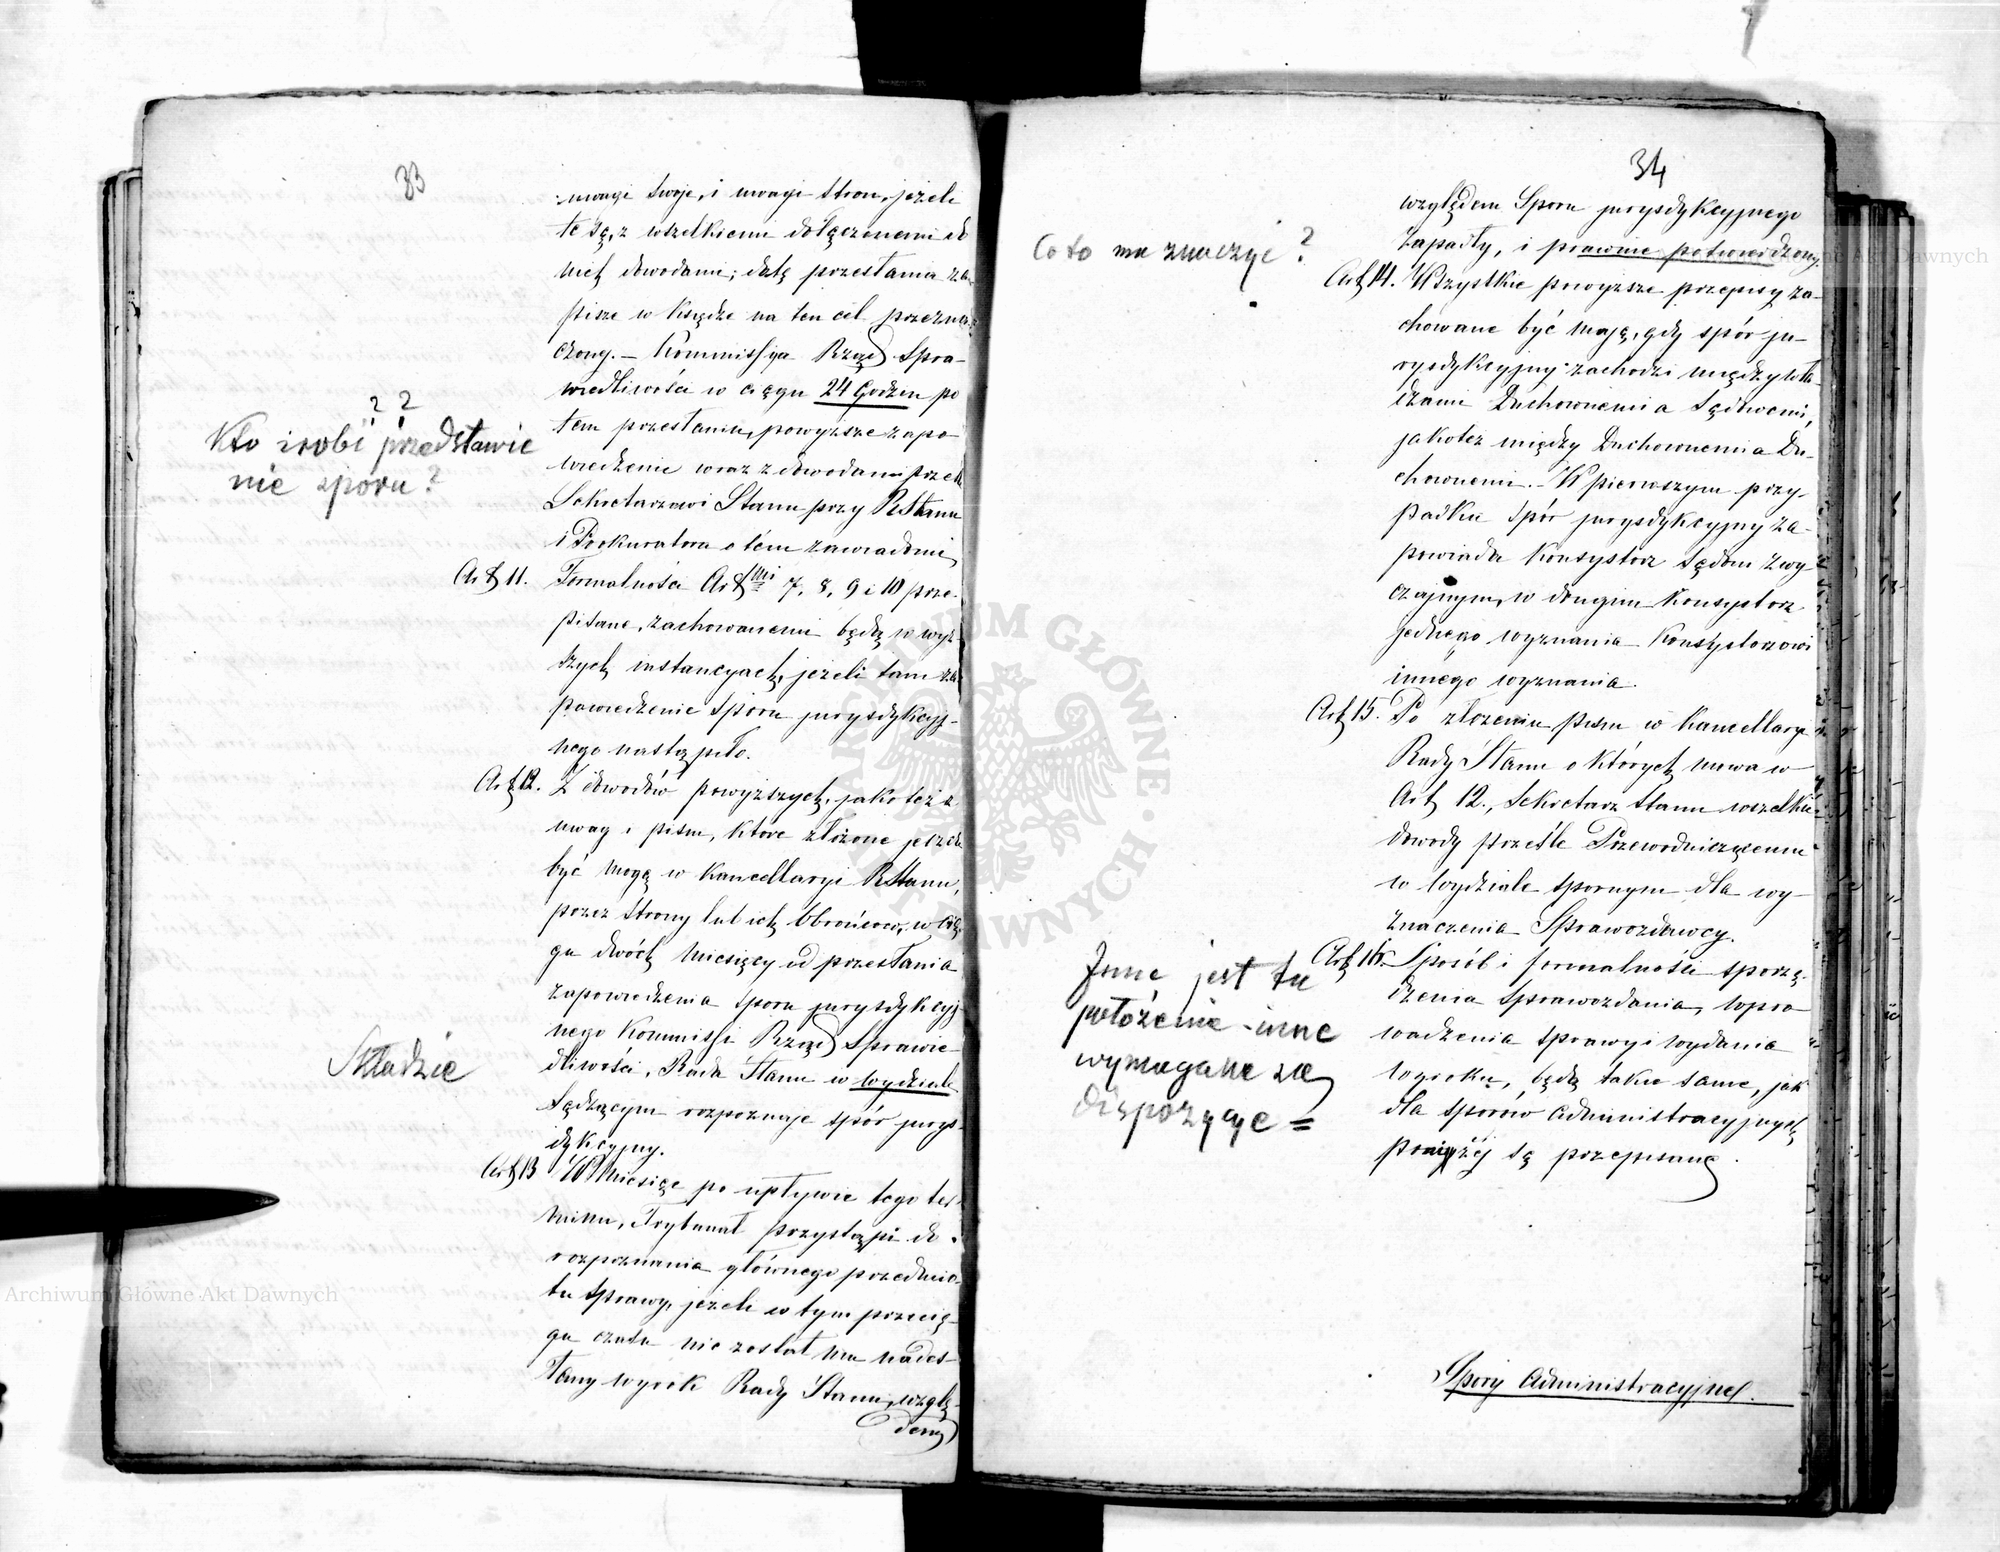 33
uwagi swoje, i uwagi stron, jeżeli
te są, z wszelkiemi dołączonemi do
nich dowodami; datę przesłania za-
pisze w księdze na ten cel przezna-
czonej. – Kommissya Rząd. Spra-
wiedliwości w ciągu 24 Godzin po
tem przesłaniu, powyższe zapo-
wiedzenie wraz z dowodami prześle
Sekretarzowi Stanu przy R Stanu
i Prokuratora o tém zawiadomi
? ?
Kto zrobi przedstawie
nie sporu?
Art 11. Formalności Art mi 7, 8, 9 i 10 prze-
pisane, zachowanemi będą w wyż-
szych instancyach, jeżeli tam za-
powiedzenie sporu jurysdykcyj-
nego nastąpiło.
Art 12. Z dowodów powyższych, jako też z
uwag i pism, które złożone jeszcze
być mogą w Kancellaryi R Stanu,
przez strony lub ich Obrońców, w cią-
gu dwóch miesięcy od przesłania
zapowiedzenia sporu jurysdykcyj
nego Kommissi Rząd Sprawie-
dliwości, Rada Stanu w wydziale
sądzącym rozpoznaje spór jurys-
dykcyjny.
Składzie
Art 13 W Miesiąc po upływie tego ter-
minu, Trybunał przystąpi do
rozpoznania głównego przedmio-
tu sprawy, jeżeli w tym przecią-
gu czasu nie został mu nades-
łany wyrok Rady Stanu, wzglę-
dem
34
względem Sporu jurysdykcyjnego
zapadły, i prawnie potwierdzony.
Co to ma znaczyć?
Art 14. Wszystkie powyższe przepisy za-
chowane być mają, gdy spór ju-
rysdykcyjny zachodzi między wła-
dzami Duchownemi a Sądowemi,
jakoteż między Duchownemi a Du-
chownemi. – W pierwszym przy-
padku spór jurysdykcyjny za-
powiada Konsystorz Sądom zwy-
czajnym, w drugim Konsystorz
jednego wyznania Konsystorzowi
innego wyznania.
Art 15. Po złożeniu pism w Kancellaryi
Rady Stanu o których mowa w
Art 12., Sekretarz Stanu wszelkie
dowody prześle Przewodniczącemu
w wydziale spornym dla wy-
znaczenia Sprawozdawcy.
Art 16. Sposób i formalności sporzą-
dzenia sprawozdania, wpro-
wadzenia sprawy i wydania
wyroku, będą takie same, jak
dla sporów administracyjnych
poniżéj są przepisane.
Inne jest tu
położenie – inne
wymagane są
dispozycye =
Spory administracyjne.
Archiwum Główne Akt Dawnych
Archiwum Główne Akt Dawnych
ARCHIWUM GŁÓWNE AKT DAWNYCH